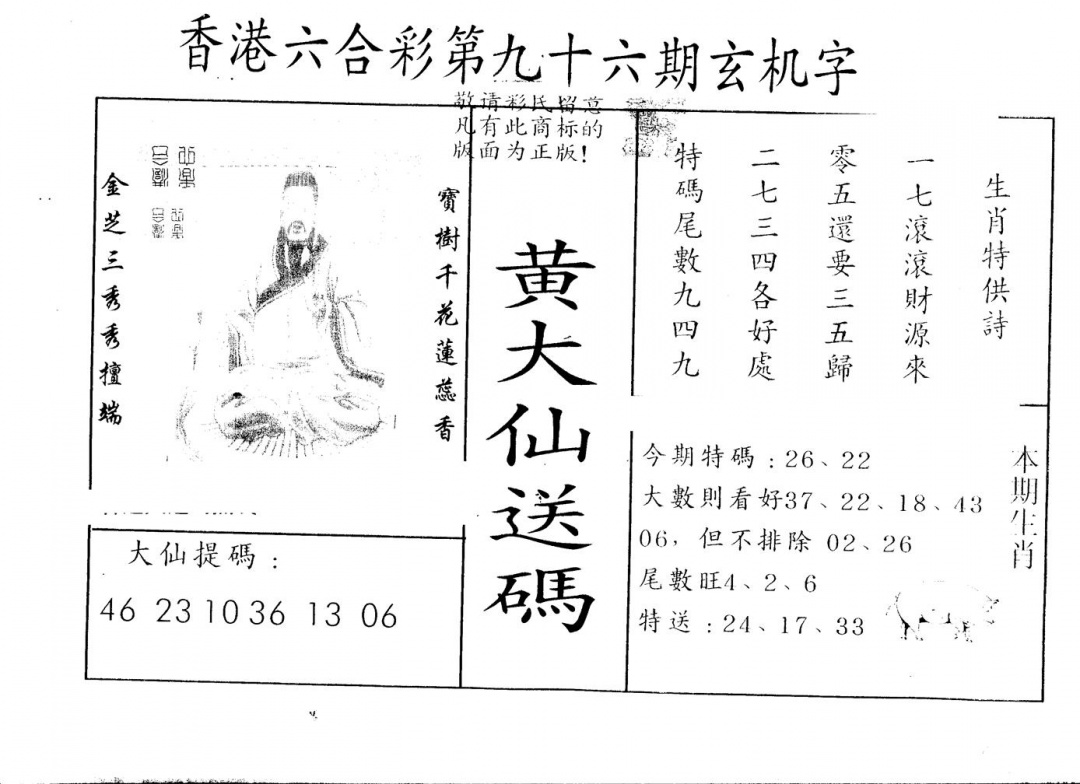 香港六合彩第九十六期玄机字
敬请彩民留意
凡有此商标的
版面为正版!
生肖特供詩
一七滾滾財源來
零五還要三五歸
二七三四各好處
特碼尾數九四九
黄大仙送碼
寶樹千花蓮蕊香
金芝三秀秀擅端
大仙提碼:
46 23 10 36 13 06
本期生肖
今期特碼:26、22
大數則看好37、22、18、43
06，但不排除 02、26
尾數旺4、2、6
特送:24、17、33